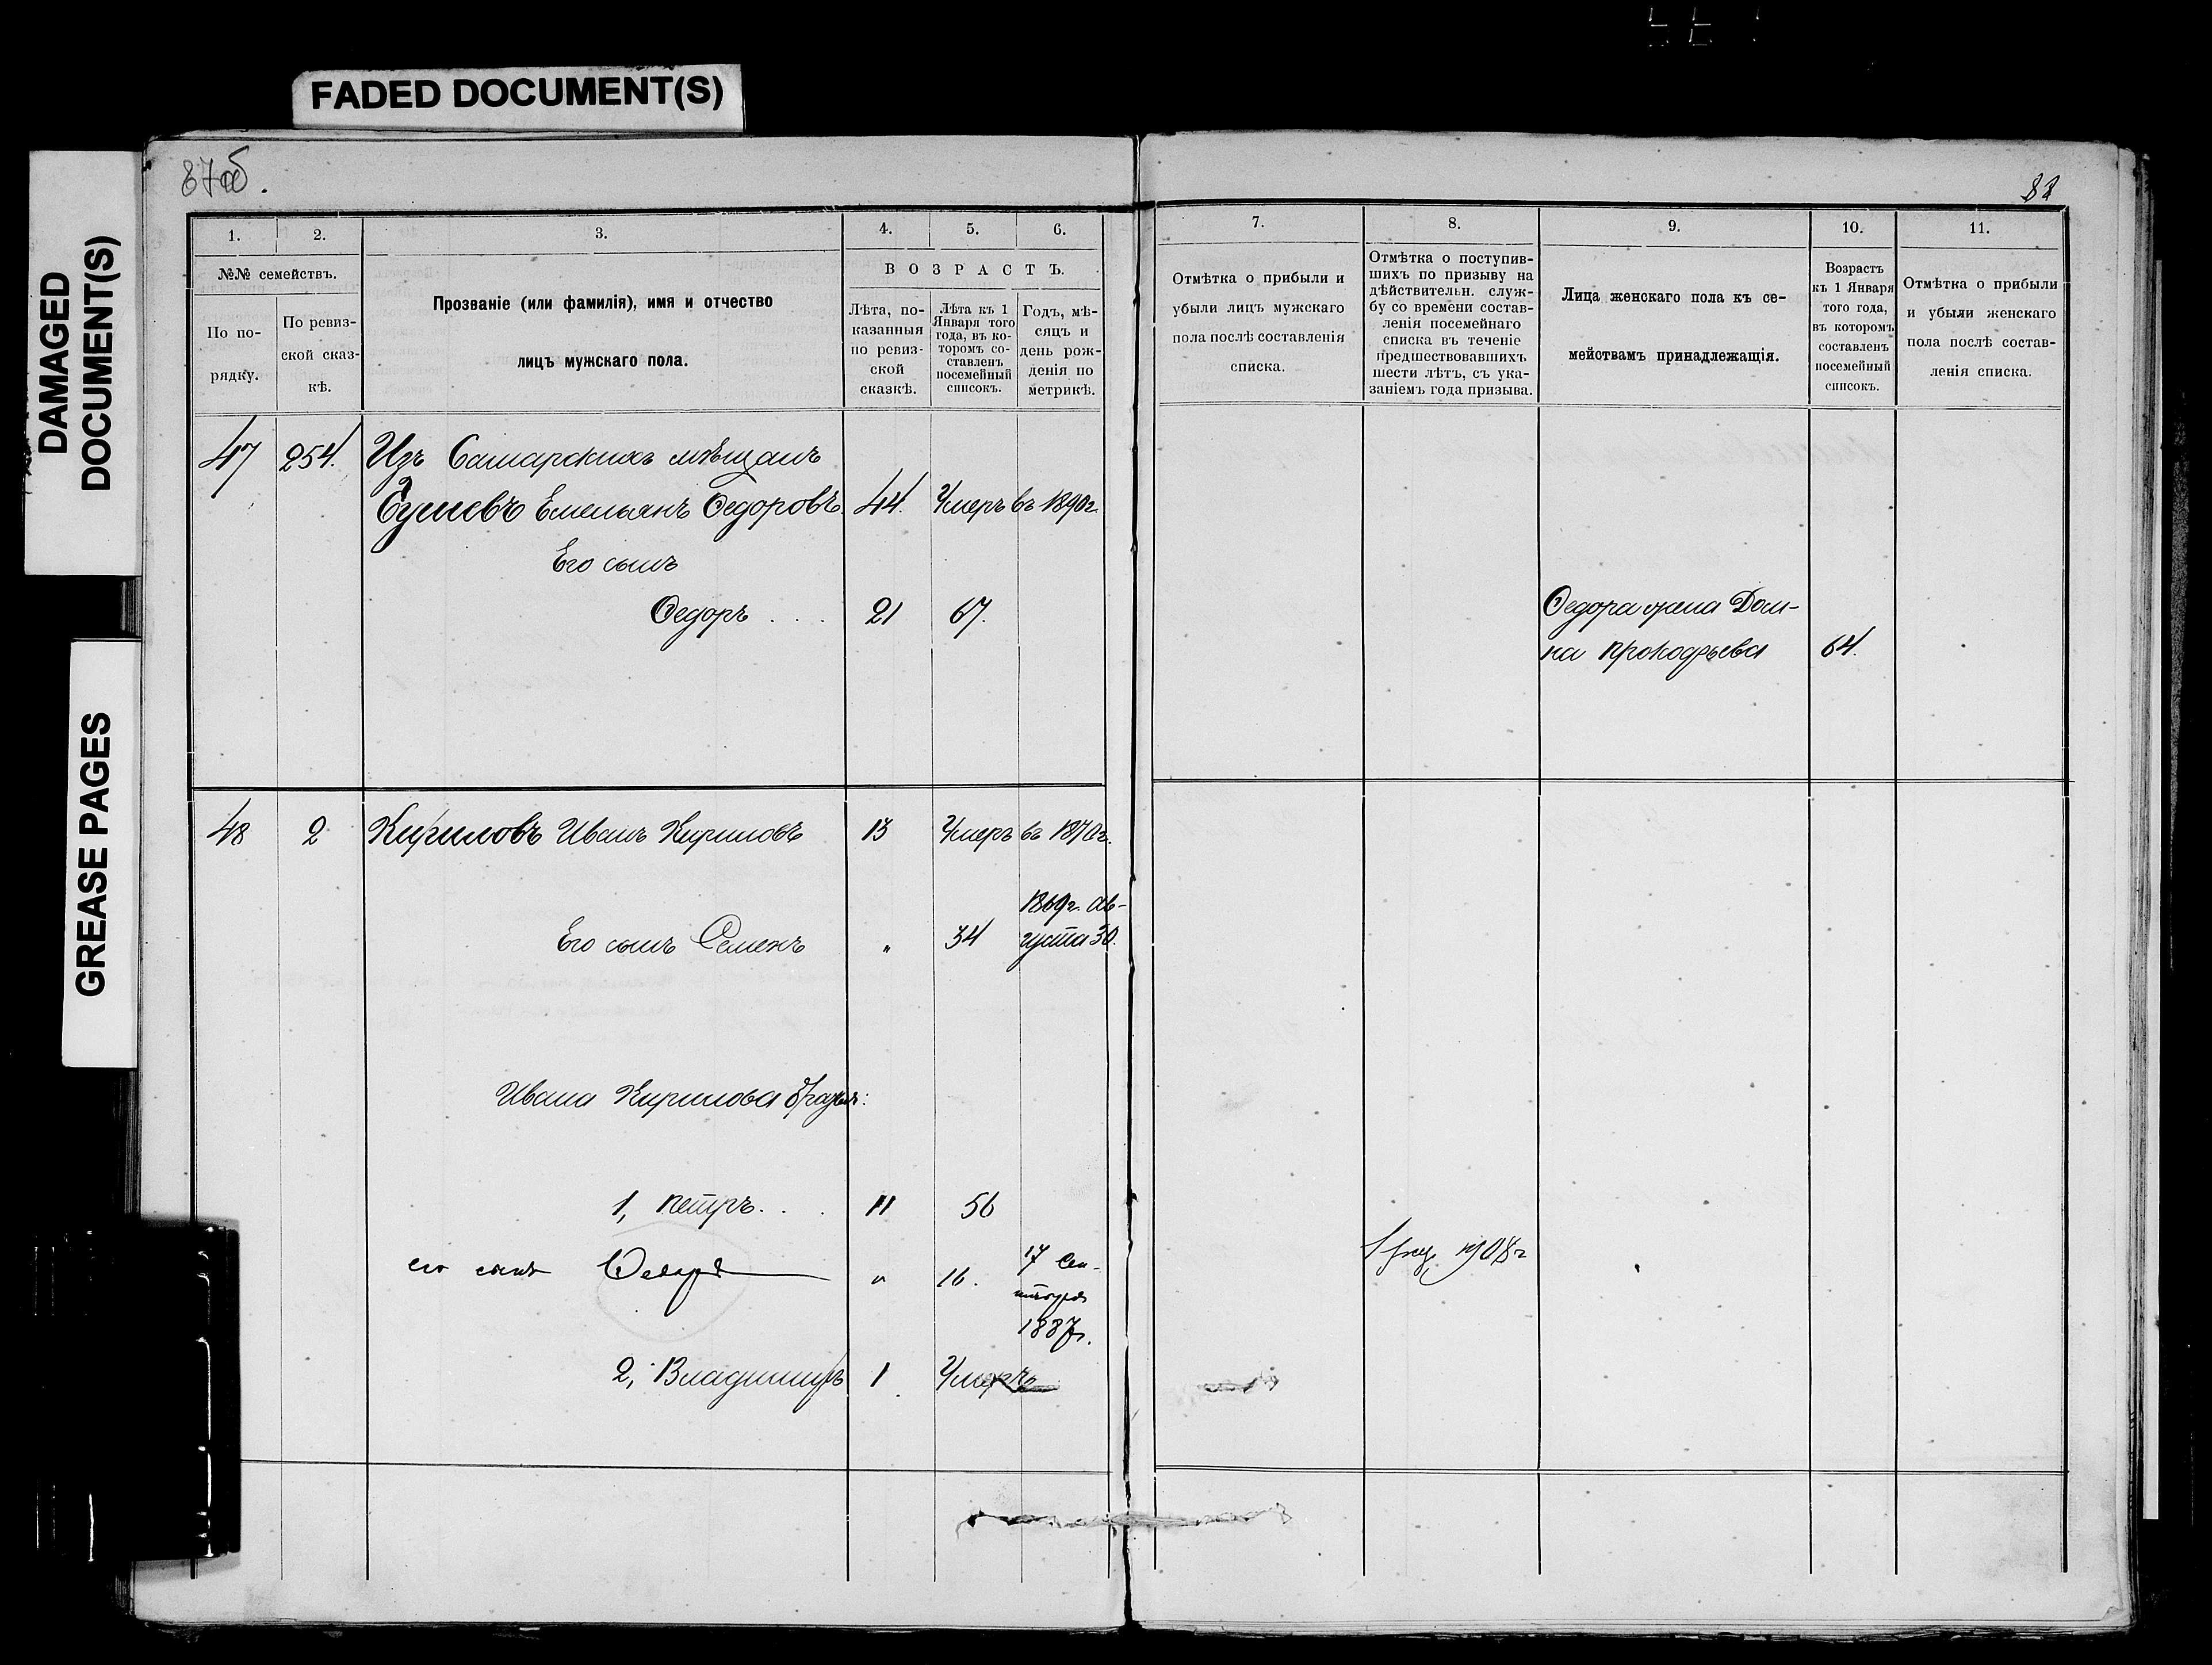 FADED DOCUMENT(S)
DAMAGED
DOCUMENT(S)
GREASE PAGES
87об.
1.
2.
3.
4.
5.
6.
№№ семействъ.
По по-
рядку.
По ревиз-
ской сказ-
кѣ.
Прозваніе (или фамилія), имя и отчество
лицъ мужскаго пола.
ВОЗРАСТЪ.
Лѣта, по-
казанныя
по ревиз-
ской
сказкѣ.
Лѣта къ 1
Января того
года, въ ко-
торомъ со-
ставленъ
посемейный
списокъ.
Годъ, мѣ-
сяцъ и
день рож-
денія по
метрикѣ.
47 254. Изъ Самарскихъ мѣщанъ
Емельянъ Федоровъ. 44. Умеръ въ 1890г.
Его сынъ
Федоръ . . . 21 67.
48 2 Кириловъ Иванъ Кириловъ 13 Умеръ въ 1870г.
1869г. Ав-
Его сынъ Семенъ „ 34 густа 30.
Ивана Кирилова братья:
1, Петръ. . . 11 56
его сынъ Федоръ „ 16. 17 Сен-
тября
1887г.
2, Владиміръ 1 Умеръ
88
7.
8.
9.
10.
11.
Отмѣтка о прибыли и
убыли лицъ мужскаго
пола послѣ составленія
списка.
Отмѣтка о поступив-
шихъ по призыву на
дѣйствительн. служ-
бу со времени состав-
ленія посемейнаго
списка въ теченіе
предшествовавшихъ
шести лѣтъ, съ ука-
заніемъ года призыва.
Лица женскаго пола къ се-
мействамъ принадлежащія.
Возрастъ
къ 1 Января
того года,
въ которомъ
составленъ
посемейный
списокъ.
Отмѣтка о прибыли
и убыли женскаго
пола послѣ состав-
ленія списка.
Федора жена Дом-
на Прокофьева 64.
1908г